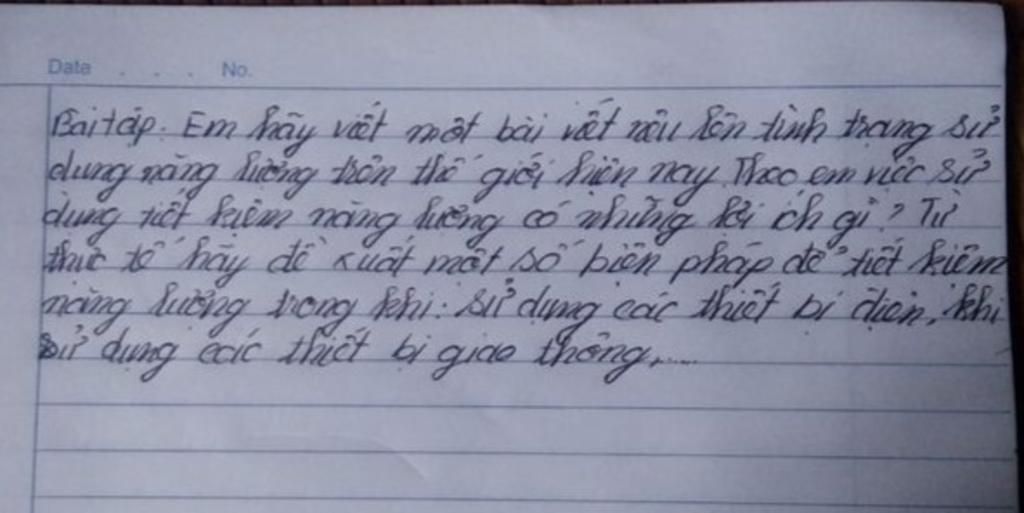 Date . . . No.
Bài tập: Em hãy viết một bài viết nêu lên tình trạng sử
dụng năng lượng trên thế giới hiện nay. Theo em việc sử
dụng tiết kiệm năng lượng có những lợi ích gì? Từ
thực tế hãy đề xuất một số biện pháp để tiết kiệm
năng lượng trong khi: sử dụng các thiết bị điện, khi
sử dụng các thiết bị giao thông,.....